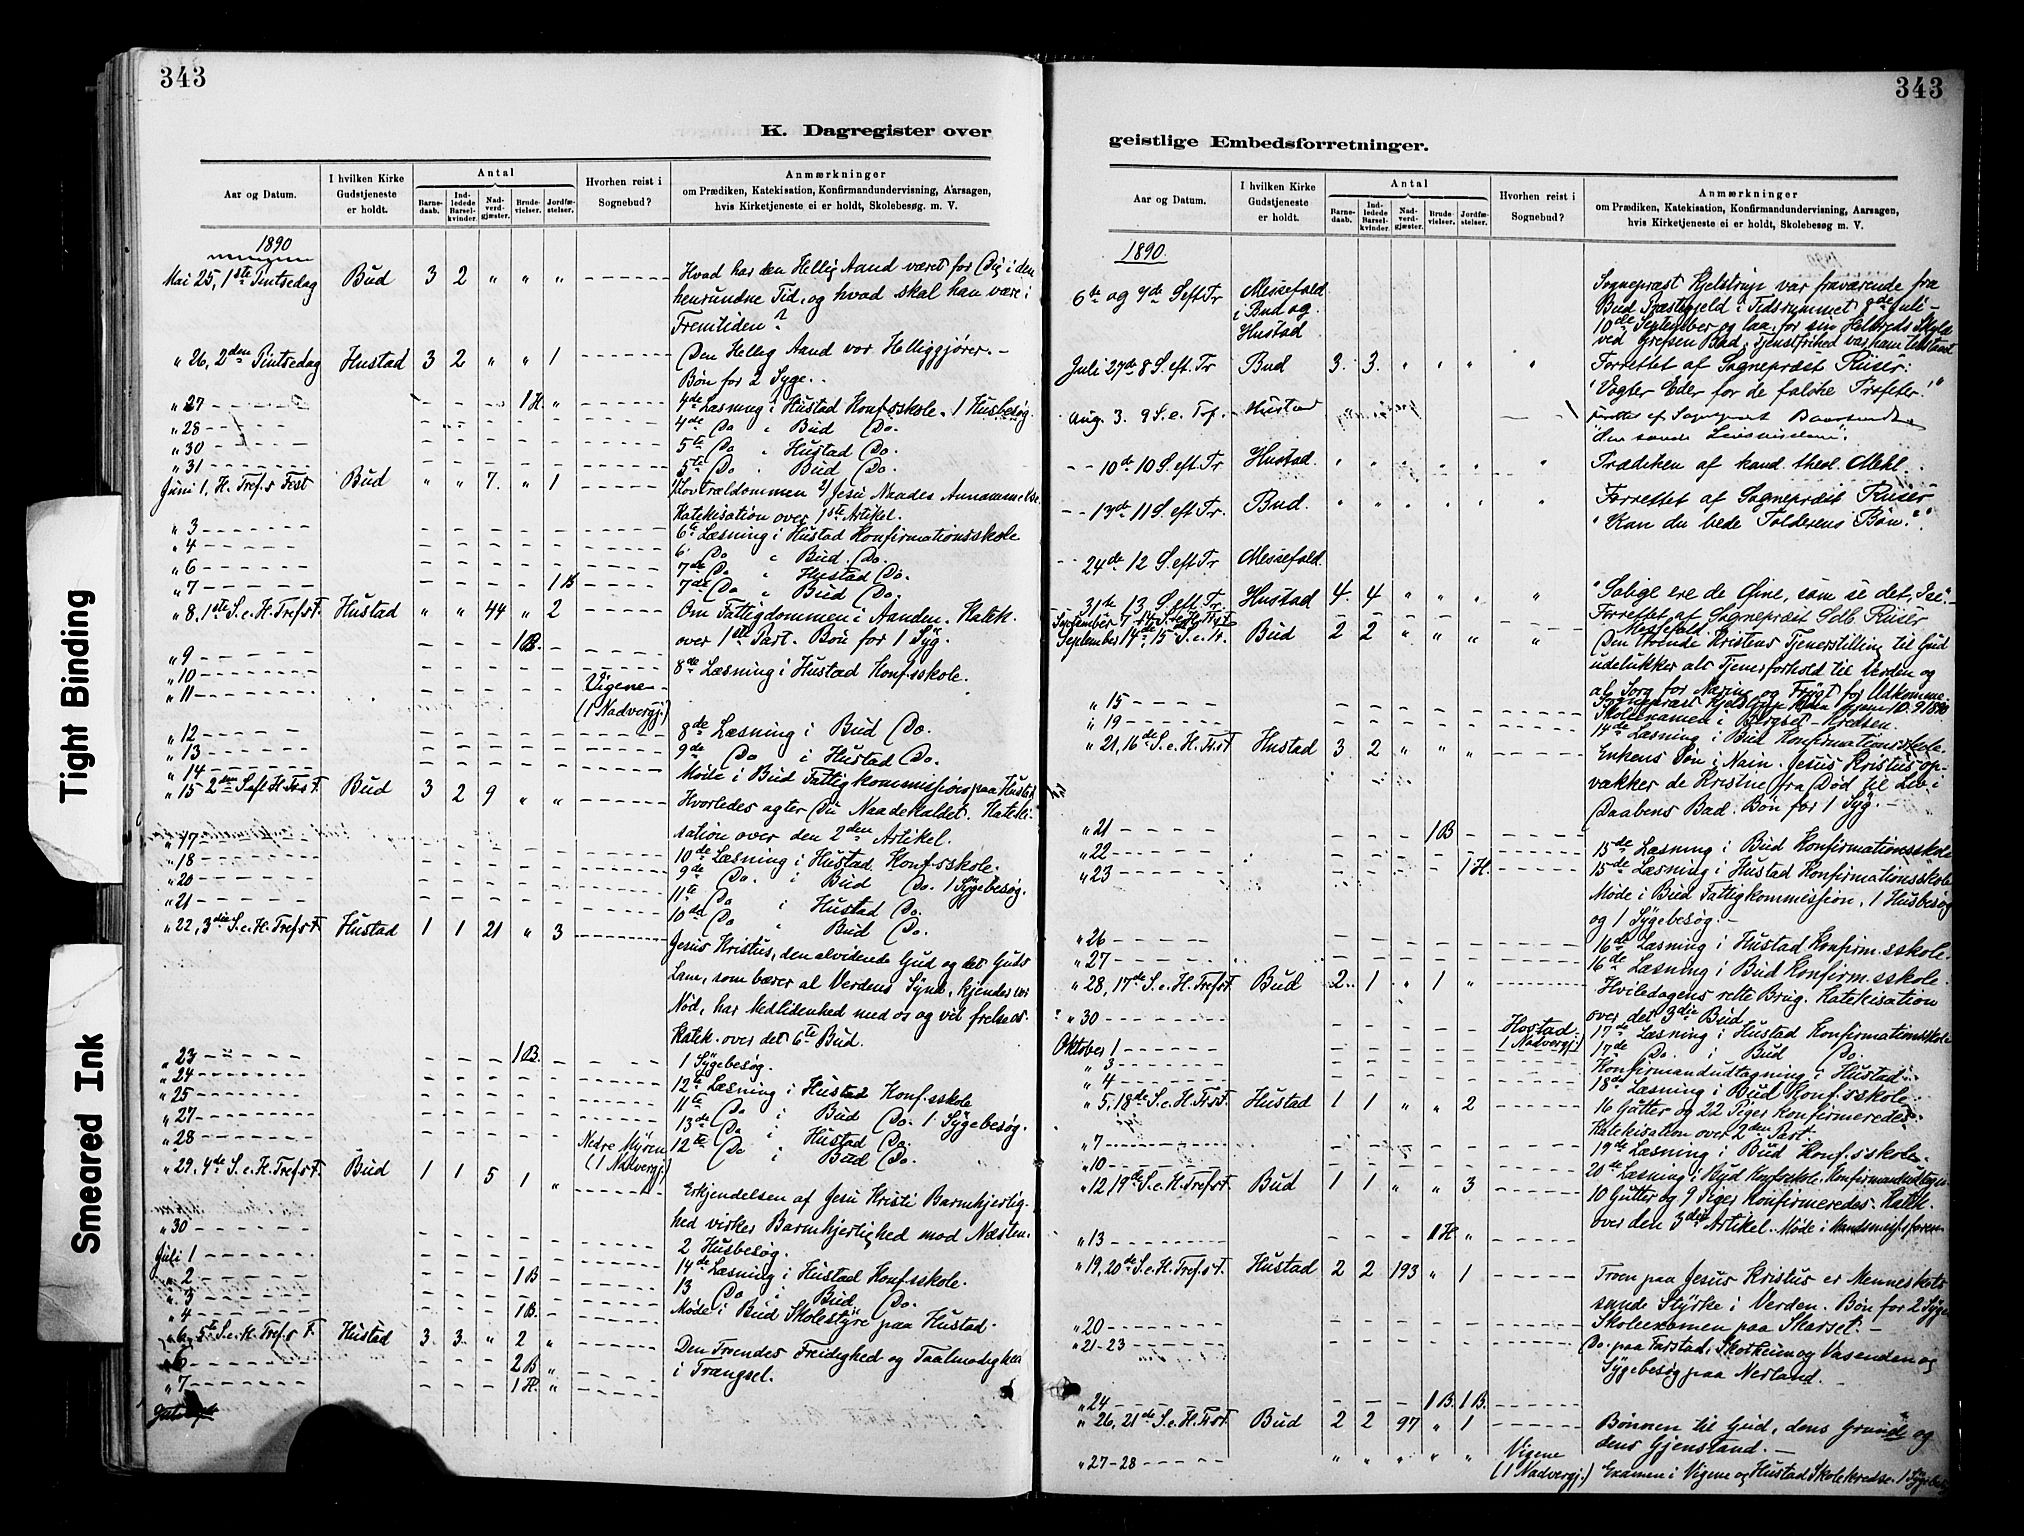 343
K. Dagregister over
Aar og Datum.
I hvilken Kirke Gudstjeneste er holdt.
Antal
Barnedaab.
Indledede Barselkvinder.
Nadverdgjæster.
Brudevielser.
Jordfæstelser.
Hvorhen reist i Sognebud?
Anmærkninger
om Prædiken, Katekisation, Konfirmandundervisning, Aarsagen,
hvis Kirketjeneste ei er holdt, Skolebesøg. m. V.
1890
Mai 25, 1ste Pintsedag Bud 3 2 " " " Hvad har den Hellig Aand været for Dig i den
henrundne Tid, og hvad skal han være i
Fremtiden?
" 26, 2den Pintsedag Hustad 3 2 " " 1 Den Hellig Aand vor Helliggjører. -
Bøn for 2 Syge.
" 27 1 H. " 4de Læsning i Hustad Konf.sskole. 1 Husbesøg.
" 28 4de Do " Bud Do.
" 30 5te Do " Hustad Do.
" 31 5te Do " Bud Do.
Juni 1, H. Tref.s Fest Bud " " 7. " 1 1) Lovtrældommen 2) Jesu Naades Annammelse.
Katekisation over 1ste Artikel.
" 3 6te Læsning i Hustad Konfirmationsskole
" 4 6 Do " Bud Do.
" 6 7de Do " Hustad Do.
" 7 1 B 7de Do " Bud Do.
" 8, 1ste S. e. H. Tref.s F. Hustad " " 44 " 2 Om Fattigdommen i Aanden. Katek.
over 1ste Part. Bøn for 1 Syg.
" 9 1 B.
" 10 8de Læsning i Hustad Konf.sskole.
" 11 Vigene
(1 Nadvergj.)
" 12 8de Læsning i Bud Do.
" 13 9de Do i Hustad Do.
" 14 Møde i Bud Fattigkommission paa Hustad
" 15 2den S. eft H. Tr.s F. Bud 3 2 9 " " Hvorledes agter Du Naadekaldet. Kateki-
sation over den 2den Artikel.
" 17 10de Læsning i Hustad Konf.sskole.
" 18 9de Do. i Bud Do. 1 Sygebesøg.
" 20 11te Do i Hustad Do.
" 21 10de Do " Bud Do.
" 22, 3die S. e. H. Tref.s F. Hustad 1 1 21 " 3 Jesus Kristus, den alvidende Gud og det Guds
Lam, som bærer al Verdens Synd, kjender vor
Nød, har Medlidenhed med os og vil frelse os.
Katek. over det 6te Bud.
" 23 1 B. 1 Sygebesøg.
" 24 12te Læsning i Hustad Konf.sskole
" 25 11te Do i Bud Do. 1 Sygebesøg.
" 27 13de Do i Hustad Do.
" 28 Nedre Myren
(1 Nadvergj.) 12te Do i Bud Do.
" 29. 4de S. e. H. Tref.s F. Bud 1 1 5 1 " Erkjendelsen af Jesu Kristi Barmhjertig-
hed virker Barmhjertighed mod Næsten.
" 30 2 Husbesøg.
Juli 1 14de Læsning i Hustad Konf.sskole.
" 2 1 B 13 Do i Bud Do.
" 3 Møde i Bud Skolestyre paa Hustad.
" 4 1 B.
" 6 5te S. e. H. Tref.s F. Hustad 3 3 " 2 " Den Troendes Freidighed og Taalmodighed
i Trængsel.
" 6 2 B "
" 7 1 H. "
343
geistlige Embedsforretninger.
Aar og Datum.
I hvilken Kirke Gudstjeneste er holdt.
Antal
Barnedaab.
Indledede Barselkvinder.
Nadverdgjæster.
Brudevielser.
Jordfæstelser.
Hvorhen reist i Sognebud?
Anmærkninger
om Prædiken, Katekisation, Konfirmandundervisning, Aarsagen,
hvis Kirketjeneste ei er holdt, Skolebesøg m. V.
1890.
6te og 7de S eft Tr Messefald i Bud og Hustad Sognepræst Kjelstrup var fraværende fra
Bud Præstegjeld i Tidsrummet 9de Juli -
10de September og laa for sin Helbreds Skyld
ved Grefsen Bad. Tjenstfrihed var ham tilstaaet
Juli 27de 8 S. eft. Tr Bud 3. 3. " " " " Forrettet af Sognepræst Riiser:
"Vogter Eder for de falske Profeter!"
Aug. 3. 9 S. e. Tr. Hustad af Sognepræst
"Den sande
10de 10 S. eft Tr Hustad. " " " " " " Prædiken af kand. theol. Mehl.
17de 11 S. eft Tr. Bud. " " " " " " Forrettet af Sognepræst Riiser
"Kan du bede Tolderens Bøn?"
24de 12 S. eft Tr Messefald.
31te 13 S. eft Tr Hustad 4. 4 " " " " "Salige ere de Øine, som se det, I se"
Forrettet af Sognepræst Edb. Riiser
September 7. 14. S. e. H. Tr.s F. Messefald.
September 14de 15 S. e. tr. Bud 2 2 " " " " Den troende Kristens Tjenerstilling til Gud
udelukker alt Tjenerforhold til Verden og
al Sorg for Næring og Frygt for Udkomme.
Sognepræst Kjelstrup kom hjem 10. 9 1890
" 15 Skoleexamen i Bergset Kredsen.
" 19 14de Læsning i Bud Konfirmationsskole.
" 21, 16de S. e. H. Tr.s F. Hustad 3 2 " " " Enkens Søn i Nain. Jesus Kristus op-
vækker de Kristne fra Død til Liv i
Daabens Bad. Bøn for 1 Syg. -
" 21 1 B
" 22 15de Læsning i Bud Konfirmationsskole
" 23 1 H. 15de Læsning i Hustad Konfirmationsskole
Møde i Bud Fattigkommission, 1 Husbesøg
og 1 Sygebesøg. -
" 26 16de Læsning i Hustad Konfirm.sskole.
" 27 16de Læsning i Bud Konfirm.sskole.
" 28, 17de S. e. H. Tref.s F. Bud 2. 1 " 1 " Hviledagens rette Brug. Katekisation
over det 3die Bud
" 30 Hostad
1 Nadvergj.) 17de Læsning i Hustad Konfirmationsskole
Oktober 1 17de Do. i Bud Do.
" 3 Konfirmandudtagning i Hustad.
" 4 18de Læsning i Bud Konf.sskole.
" 5, 18de S. e. H. Tr.s F. Hustad 1 1 " " 2 16 Gutter og 22 Piger konfirmeredes.
Katekisation over 2den Part
" 7 19de Læsning i Bud Konf.sskole.
" 10 20de Læsning i Bud Konf.sskole, Konfirmandudtagn.
" 12, 19de S. e. H. Tref.s F. Bud 1 1 " " 3 10 Gutter og 9 Piger konfirmeredes. Katek.
over den 3die Artikel. Møde i
" 13 1 H. "
" 19, 20de S. e. H. Tref.s F. Hustad 2 2 193 " 1 Troen paa Jesus Kristus er Menneskets
sande Styrke i Verden. Bøn for 2 Syge
" 20 Skoleexamen paa Skarset. -
" 21-23 Do. paa Farstad, Skotheim og Vasenden og
Sygebesøg paa Nerland.
" 24 1 B. 1 B.
" 26, 21de S. e. H. Tr.s F. Bud 2 2 97 " 1 Bønnen til Gud, dens Grund og
dens Gjenstand. -
" 27-28 " " " " " Vigene
(1 Nadvergj.) Examen i Vigene og Hustad Skolekredse. 1 Sygebesøg
Tight Binding
Smeared Ink